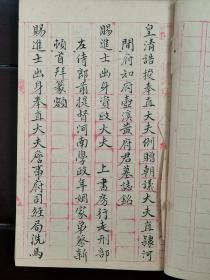 皇清誥授奉直大夫例贈朝議大夫直隸河
間府知府壺溪黃府君墓誌銘
賜進士出身資政大夫　上書房行走刑部
左侍郎前提督河南學政年姻家弟蔡新
頓首拜篆額
賜進士出身奉直大夫詹事府司經局洗馬